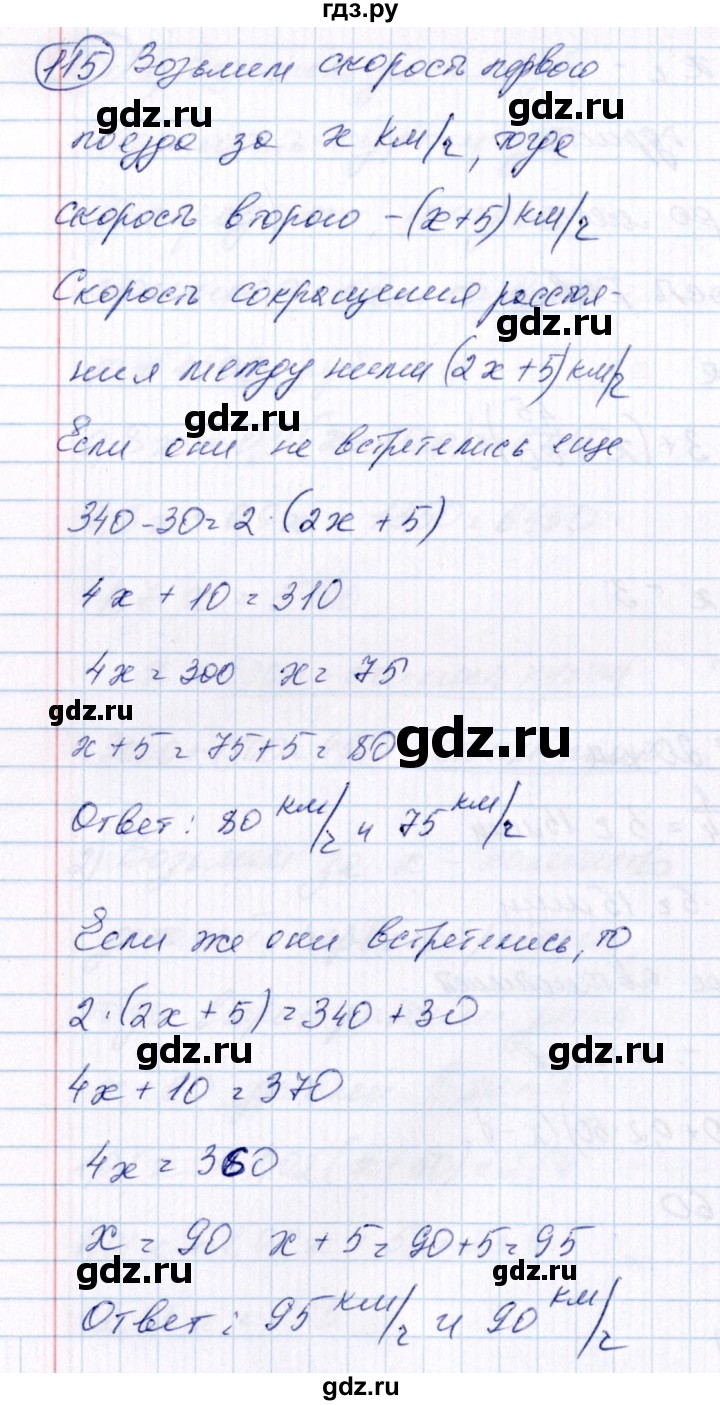 гдз.ру
115 Возьмем скорость первого
gdz.ru gdz.ru
поезда за x км/ч, тогда
скорость второго – (x+5) км/ч
Скорость сокращения расстоя-
gdz.ru
ния между ними (2x+5) км/ч
gdz.ru
Если они не встретились еще
340-30=2·(2x+5)
4x+10=310
4x=300 x=75
gdz.ru
x+5=75+5=80
gdz.ru
Ответ: 80 км/ч и 75 км/ч
Если же они встретились, то
2·(2x+5)=340+30
gdz.ru gdz.ru
4x+10=370
4x=360
x=90 x+5=90+5=95
gdz.ru gdz.ru
Ответ: 95 км/ч и 90 км/ч
gdz.ru